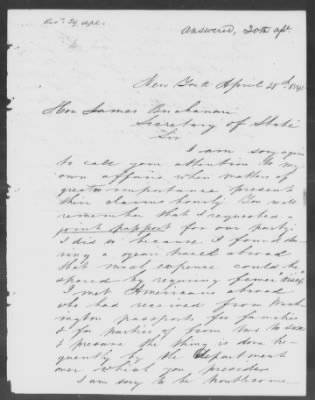 Recd. 29 Apl.
Answered, 30th Apl.
New York April 28th
Hon James Buchanan
Secretary of State
Sir
I am sorry again
to call your attention to my
own affairs when matters of
greater importance present
their claims hourly. You will
remember that I requested a
joint passport for our party.
I did so because I found du-
ring a years travel abroad
that much expense could be
spared by requiring fewer
I met Americans abroad
who had received from Wash-
ington passports for families
& for parties of from two to
& presume the thing is done fre-
quently by the Department
over which you preside
I am sorry to be troublesome